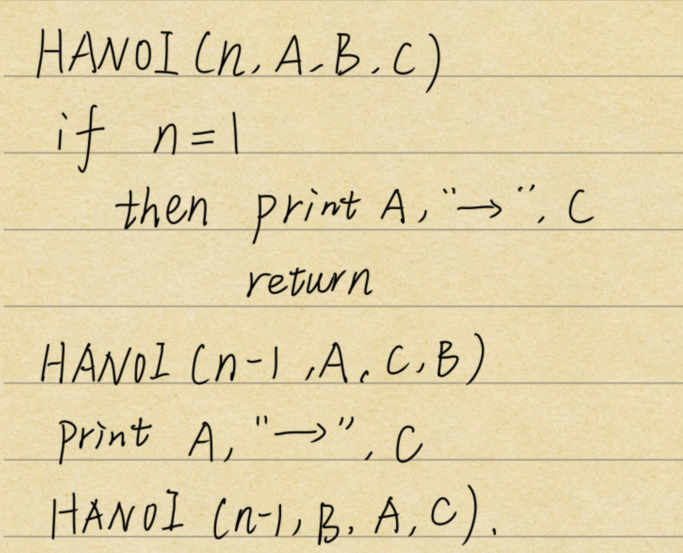 HANOI (n, A, B, C)
if n = 1
then print A, "→", C
return
HANOI (n-1, A, C, B)
print A, "→", C
HANOI (n-1, B, A, C).